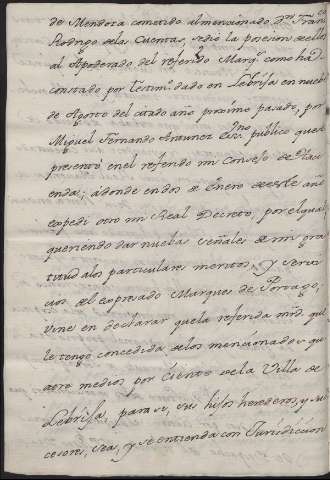 de Mendoza cometido al mencionado Dn. Franco
Rodrigo de la Cuenta, se dio la posesion de ellos
al Apoderado del referido Marqs. como ha
constado por testimo. dado en Lebrija en nuebe
de Agosto del citado año proximo pasado, por
Miguel Fernando Antunez Esno. publico que se
presentó en el referido mi Consejo de Hac
enda; a donde en dos de Enero de este año
expedi otro mi Real Decreto, por el qual
queriendo dar nuebas señales de mi gra
titud a los particulares meritos, y servi
cios del expresado Marques de Portago,
vine en declarar que la referida md. que
le tengo concedida de los mencionados qu
atro medios por ciento de la Villa de
Lebrija, para si, sus hijos herederos, y su
cesores, sea, y se entienda con Jurisdiccion